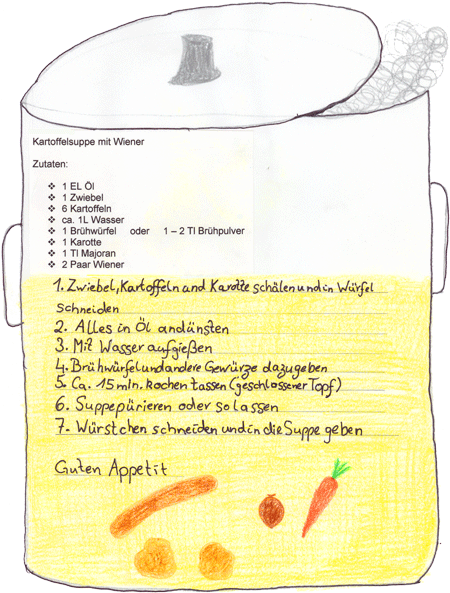 Kartoffelsuppe mit Wiener
Zutaten:
❖ 1 EL Öl
❖ 1 Zwiebel
❖ 6 Kartoffeln
❖ ca. 1L Wasser
❖ 1 Brühwürfel oder 1 – 2 Tl Brühpulver
❖ 1 Karotte
❖ 1 Tl Majoran
❖ 2 Paar Wiener
1. Zwiebel, Kartoffeln und Karotte schälen und in Würfel
schneiden
2. Alles in Öl andünsten
3. Mit Wasser aufgießen
4. Brühwürfel und andere Gewürze dazugeben
5. Ca. 15 min. kochen lassen (geschlossener Topf)
6. Suppe pürieren oder so lassen
7. Würstchen schneiden und in die Suppe geben
Guten Appetit